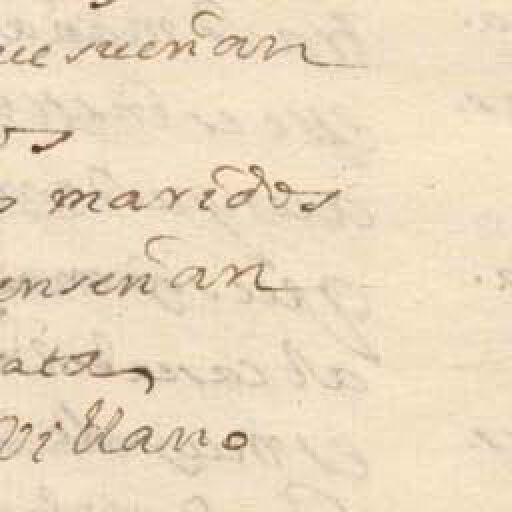 ue sueñan
os
o maridos
enseñan
ata,
villano